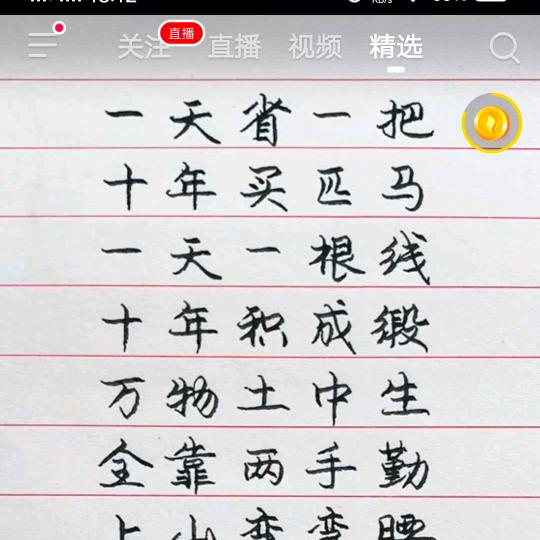 关注 直播 直播 视频 精选
一天省一把
十年买匹马
一天一根线
十年积成缎
万物土中生
全靠两手勤
上山弯弯腰